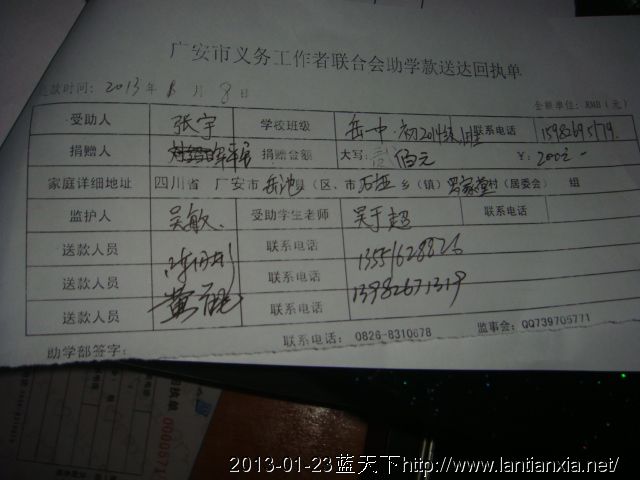 广安市义务工作者联合会助学款送达回执单
款时间：2013年 月8日 金额单位：RMB（元）
受助人 张宇 学校班级 岳一中·初2014级 联系电话
捐赠人 捐赠金额 大写： 佰元 ￥：200元
家庭详细地址 四川省 广安市 岳池县（区、市 石垭 乡（镇） 罗家堂村（居委会） 组
监护人 吴敏 受助学生老师 吴于超 联系电话
送款人员 联系电话 13551628826
送款人员 联系电话 13982671319
送款人员 联系电话
助学部签字： 联系电话：0826-8310678 监事会：QQ739705771
执单
2013-01-23蓝天下http://www.lantianxia.net/